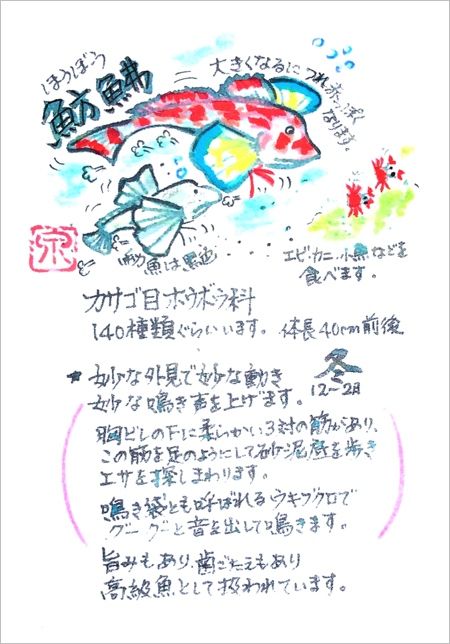 ほうぼう
魴鮄
大きくなるにつれ赤が濃く
なります。
幼魚は黒色
エビ・カニ・小魚などを
食べます。
カサゴ目ホウボウ科
140種類ぐらいいます。体長40cm前後
冬
12〜2月
★妙な外見で妙な動き
妙な鳴き声を上げます。
胸ビレの下に柔らかい3対の筋があり、
この筋を足のようにして砂泥底を歩き
エサを探しまわります。
鳴き袋とも呼ばれるウキブクロで
グーグーと音を出して鳴きます。
旨みもあり、歯ごたえもあり
高級魚として扱われています。